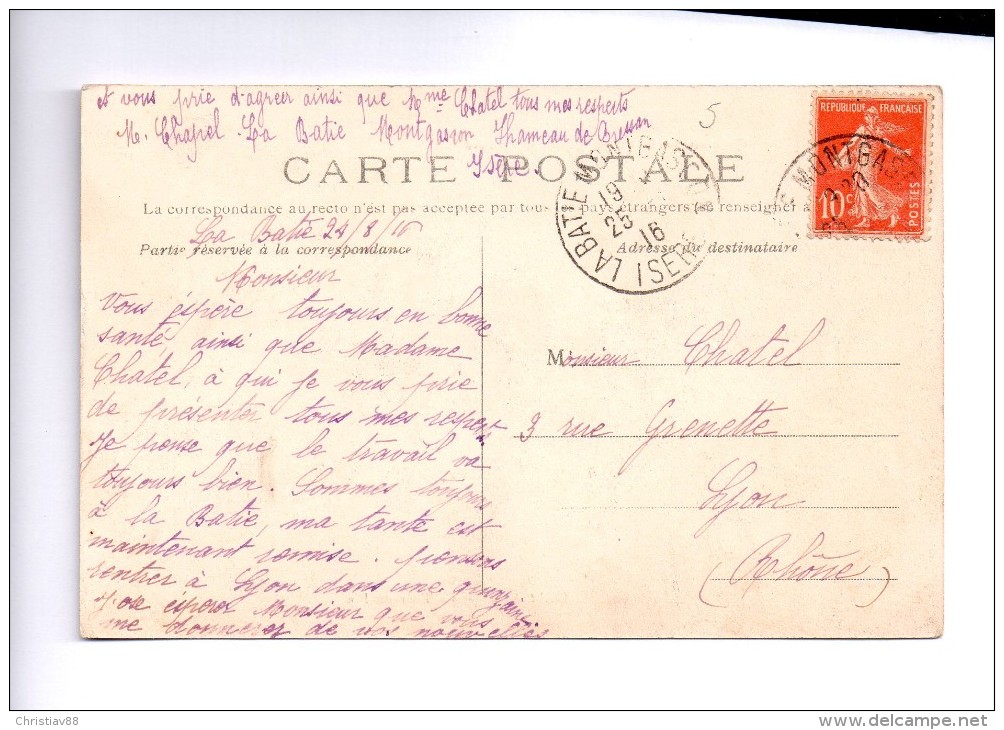 et vous prie d'agreer ainsi que Mme Chatel tous mes respects
M. Chapel. La Batie Montgascon Hameau de Bressan
Isère.
5
REPUBLIQUE FRANÇAISE
10c
POSTES
CARTE POSTALE
LA BATIE MONTGAS
19
25
16
ISERE
MONTGAS
La correspondance au recto n'est pas acceptée par tous pays étrangers (se renseigner à
La Batie 24/8/16
Partie réservée à la correspondance
Adresse du destinataire
Monsieur
Vous éspère toujours en bonne
santé ainsi que Madame
Chatel, à qui je vous prie
de présenter tous mes respects
Je pense que le travail va
toujours bien. Sommes toujours
à la Batie, ma tante est
maintenant remise. pensons
rentrer à Lyon dans une quinzaine
J'ose éspérer Monsieur que vous
me donnerez de vos nouvelles
Monsieur Chatel
3 rue Grenette
Lyon
(Rhône)
Christiav88
delcampe.net